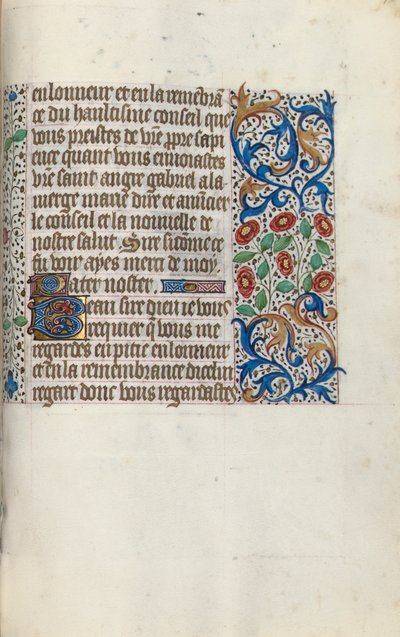 en lonneur et en la remēbrā
ce du haultisme conseil que
vous preistes de vr̄e ꝓpre sapi
ence quant vous enuoiastes
vr̄e saint angre gabriel a la
vierge marie dire et anūcier
le conseil et la nouuelle de
nostre salut. Sire si cōme ce
fu voir ayes merci de moy.
Pater noster.
Beau sire dieu ie vous
requier q̄ vous me
regardes en pitie en lonneur
et en la remembrance dicelui
regart dont vous regardastes